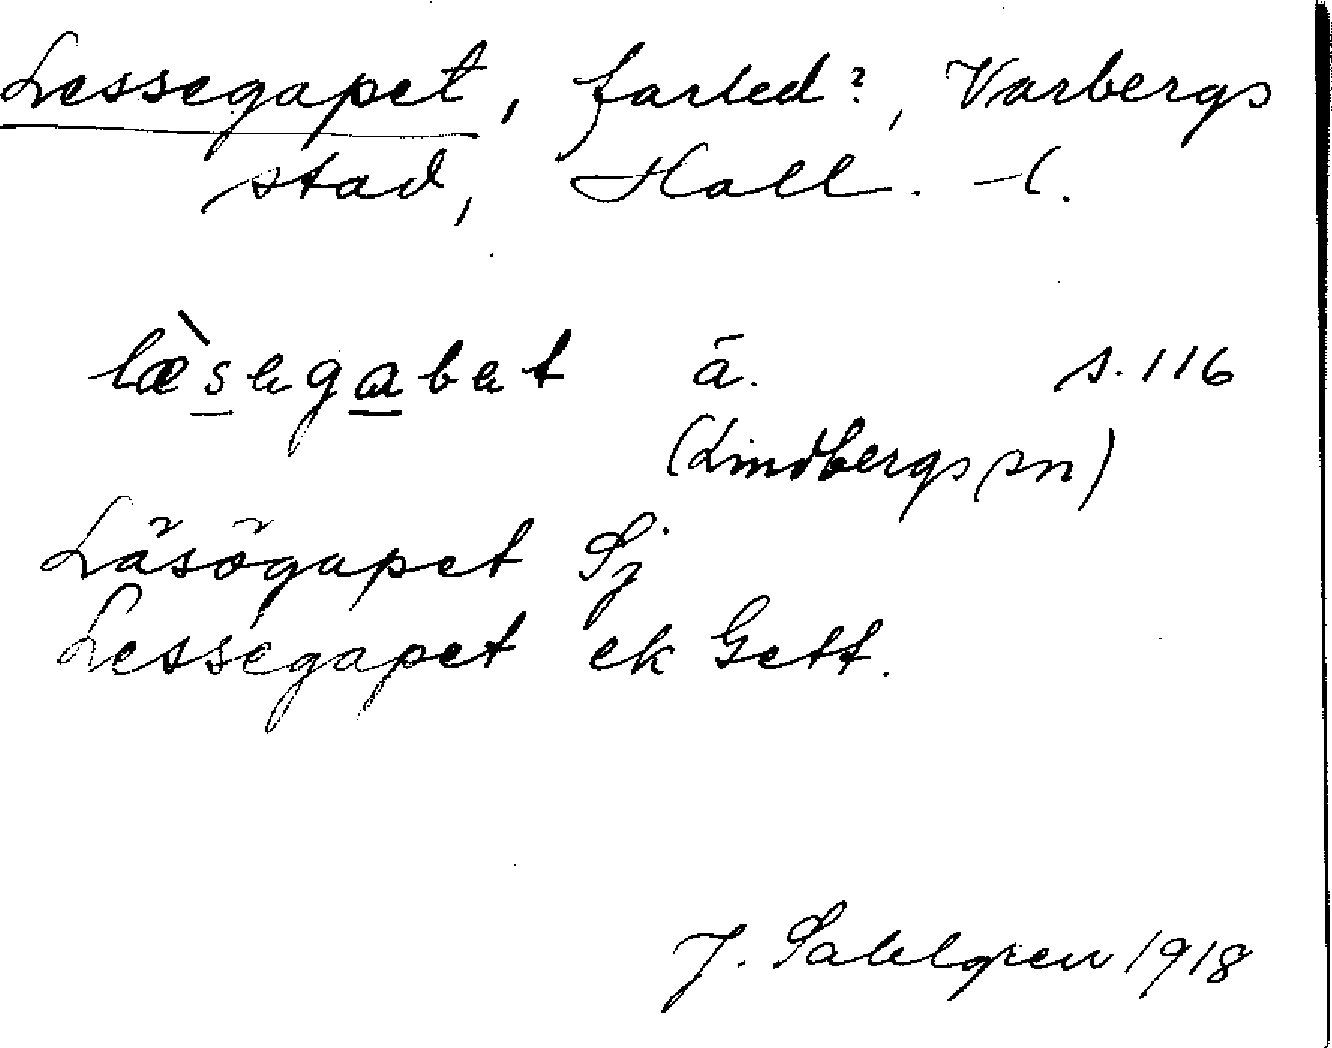 Lessegapet, farled?, Varbergs
stad, Hall. l.
læ̀segabet ä. s. 116
(Lindbergs sn)
Läsögapet Sj
Lessegapet ek Gett.
J. Sahlgren 1918